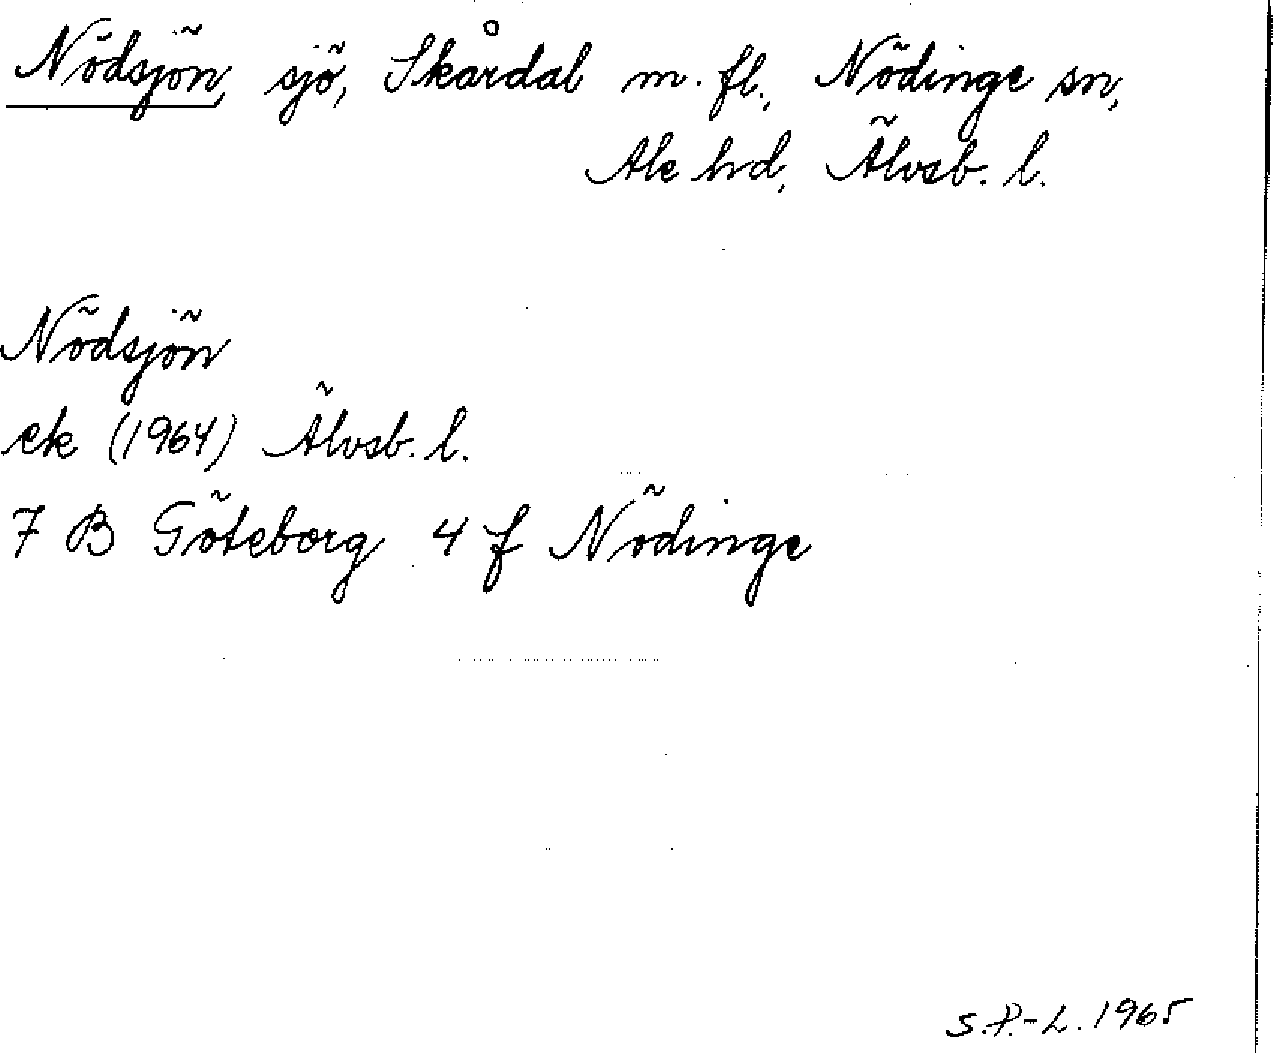 Nödsjön, sjö, Skårdal m. fl., Nödinge sn,
Ale hd, Älvsb. l.
Nödsjön
ek (1964) Älvsb. l.
7 B Göteborg 4 f Nödinge
S.P.-L. 1965